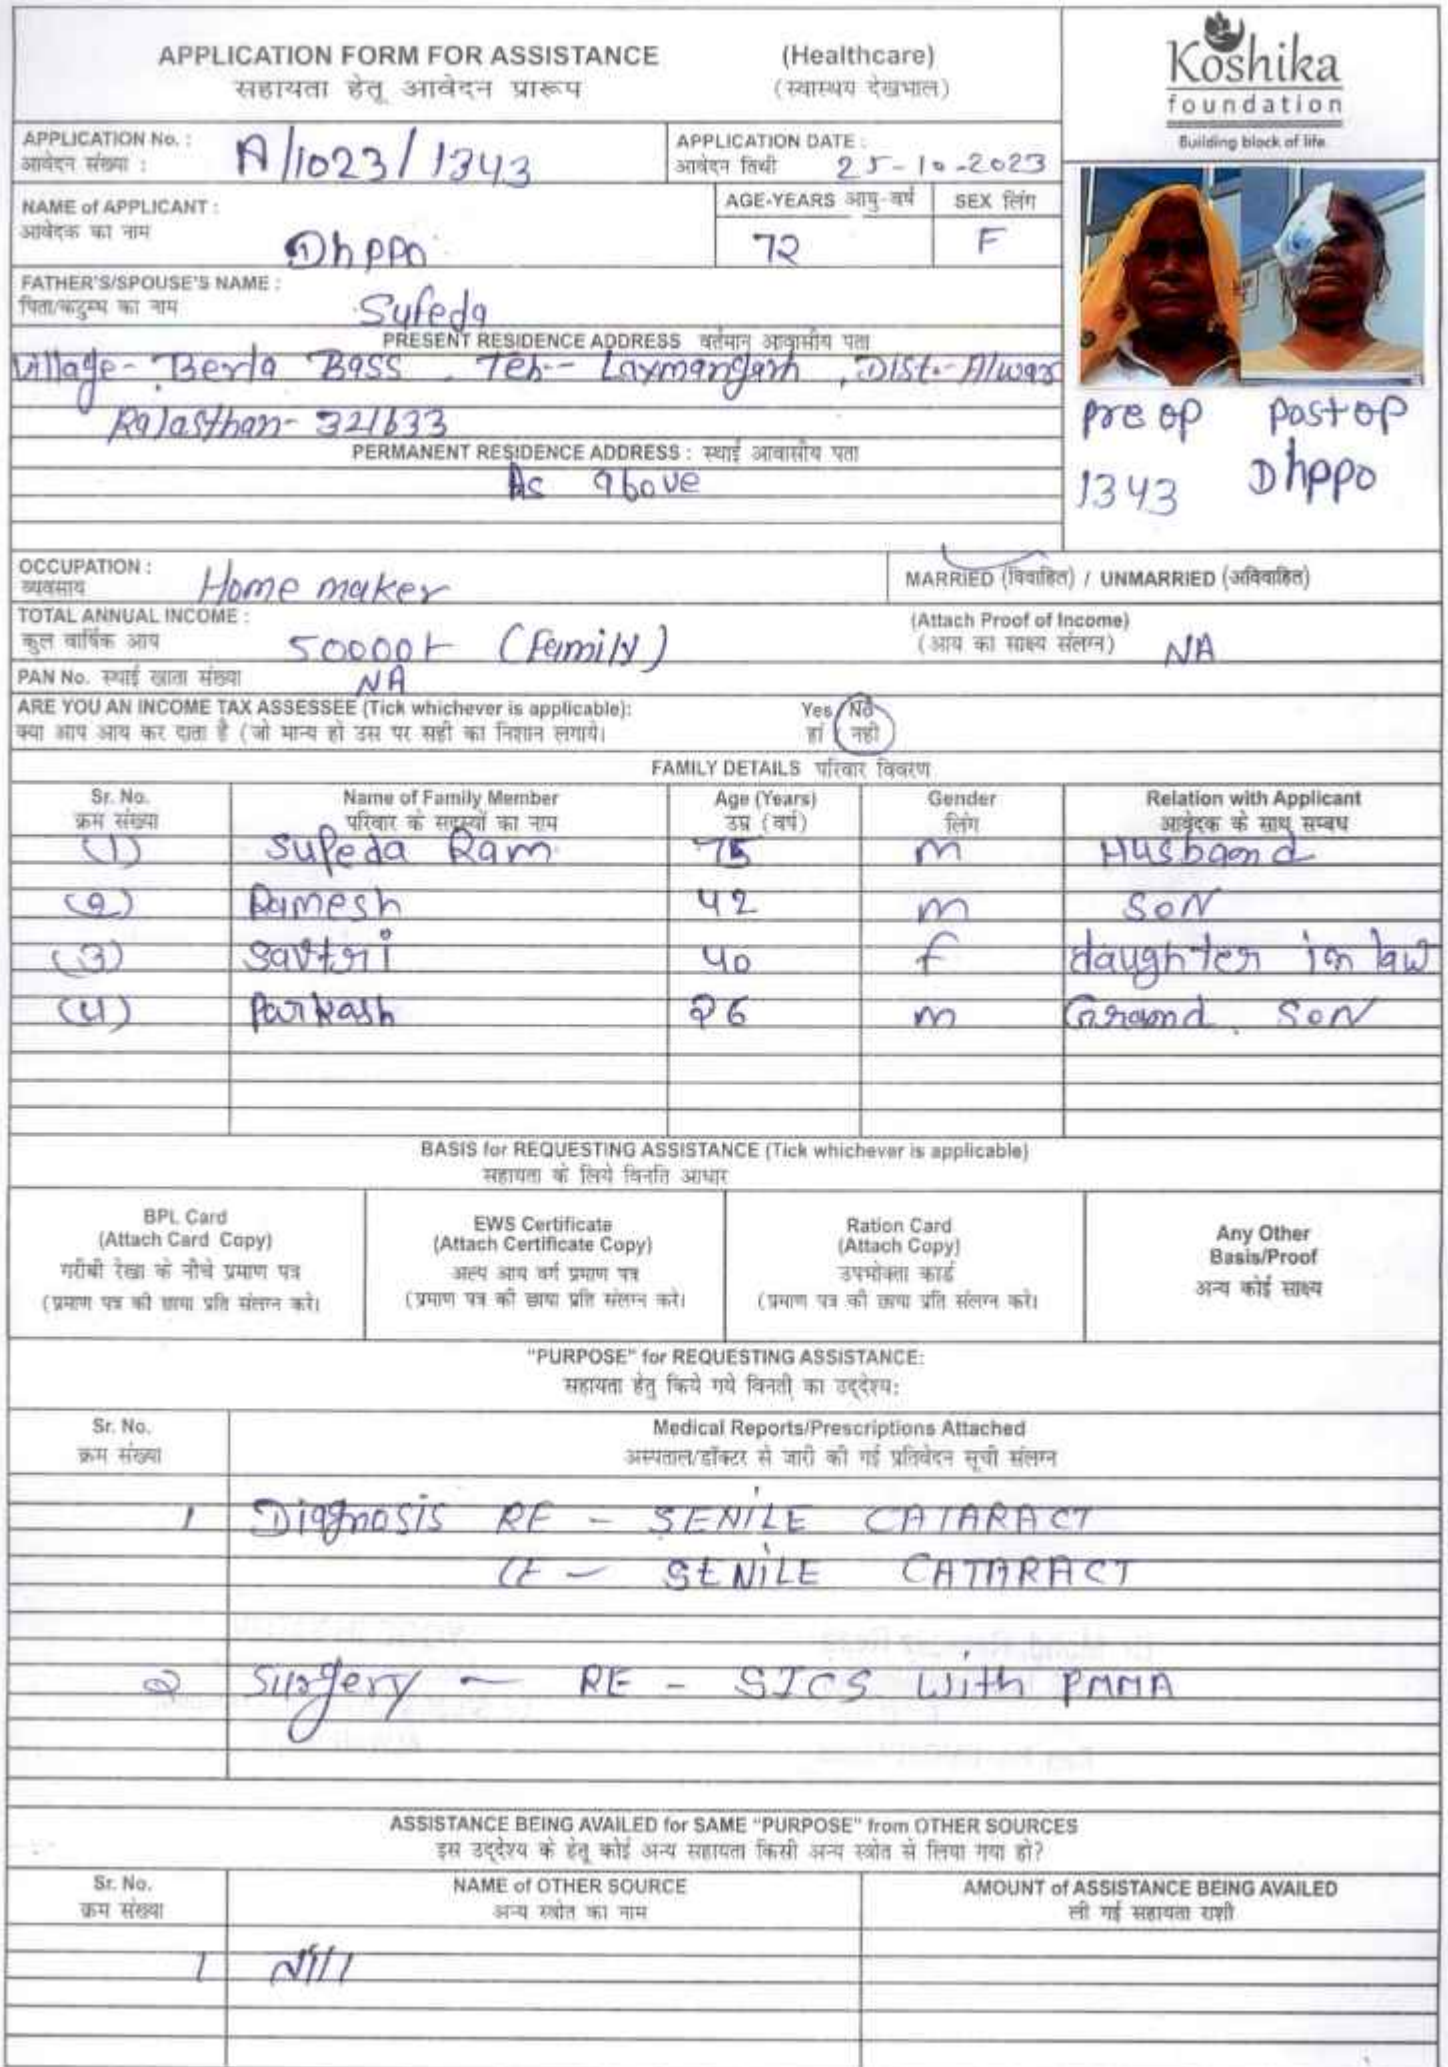 APPLICATION FORM FOR ASSISTANCE (Healthcare)
सहायता हेतू आवेदन प्रारूप (स्वास्थय देखभाल)
Koshika
foundation
Building block of life
APPLICATION No. : A/1023/1343 APPLICATION DATE : 25-10-2023
आवेदन संख्या : आवेदन तिथी
NAME of APPLICANT : AGE-YEARS आयु-वर्ष SEX लिंग
आवेदक का नाम Dhppo 72 F
FATHER'S/SPOUSE'S NAME :
पिता/कटुम्ब का नाम Sufeda
PRESENT RESIDENCE ADDRESS वर्तमान आवासीय पता
Village- Berla Bass, Teh-- Laxmangarh, Dist.- Alwar
Rajasthan- 321633
PERMANENT RESIDENCE ADDRESS : स्थाई आवासीय पता
As above
pre op post op
1343 Dhppo
OCCUPATION : MARRIED (विवाहित) / UNMARRIED (अविवाहित)
व्यवसाय Home maker
TOTAL ANNUAL INCOME : (Attach Proof of Income)
कुल वार्षिक आय 50000 (Family) (आय का साक्ष्य संलग्न) NA
PAN No. स्थाई खाता संख्या NA
ARE YOU AN INCOME TAX ASSESSEE (Tick whichever is applicable): Yes / No
क्या आप आय कर दाता है (जो मान्य हो उस पर सही का निशान लगाये। हां / नही
FAMILY DETAILS परिवार विवरण
Sr. No. Name of Family Member Age (Years) Gender Relation with Applicant
क्रम संख्या परिवार के सदस्यों का नाम उम्र (वर्ष) लिंग आवेदक के साथ सम्बध
(1) Sufeda Ram 75 m Husband
(2) Ramesh 42 m SoN
(3) Savtri 40 f daughter in law
(4) Parkash 26 m Grand. SoN
BASIS for REQUESTING ASSISTANCE (Tick whichever is applicable)
सहायता के लिये विनति आधार
BPL Card
(Attach Card Copy)
गरीबी रेखा के नीचे प्रमाण पत्र
(प्रमाण पत्र की छाया प्रति संलग्न करे।
EWS Certificate
(Attach Certificate Copy)
अल्प आय वर्ग प्रमाण पत्र
(प्रमाण पत्र की छाया प्रति संलग्न करे।
Ration Card
(Attach Copy)
उपभोक्ता कार्ड
(प्रमाण पत्र की छाया प्रति संलग्न करे।
Any Other
Basis/Proof
अन्य कोई साक्ष्य
"PURPOSE" for REQUESTING ASSISTANCE:
सहायता हेतु किये गये विनती का उद्देश्य:
Sr. No. Medical Reports/Prescriptions Attached
क्रम संख्या अस्पताल/डॉक्टर से जारी की गई प्रतिवेदन सूची संलग्न
1 Diagnosis RE - SENILE CATARACT
LE - SENILE CATARACT
2 Surgery - RE - SICS with PMMA
ASSISTANCE BEING AVAILED for SAME "PURPOSE" from OTHER SOURCES
इस उद्देश्य के हेतू कोई अन्य सहायता किसी अन्य स्त्रोत से लिया गया हो?
Sr. No. NAME of OTHER SOURCE AMOUNT of ASSISTANCE BEING AVAILED
क्रम संख्या अन्य स्त्रोत का नाम ली गई सहायता राशी
1 Nill